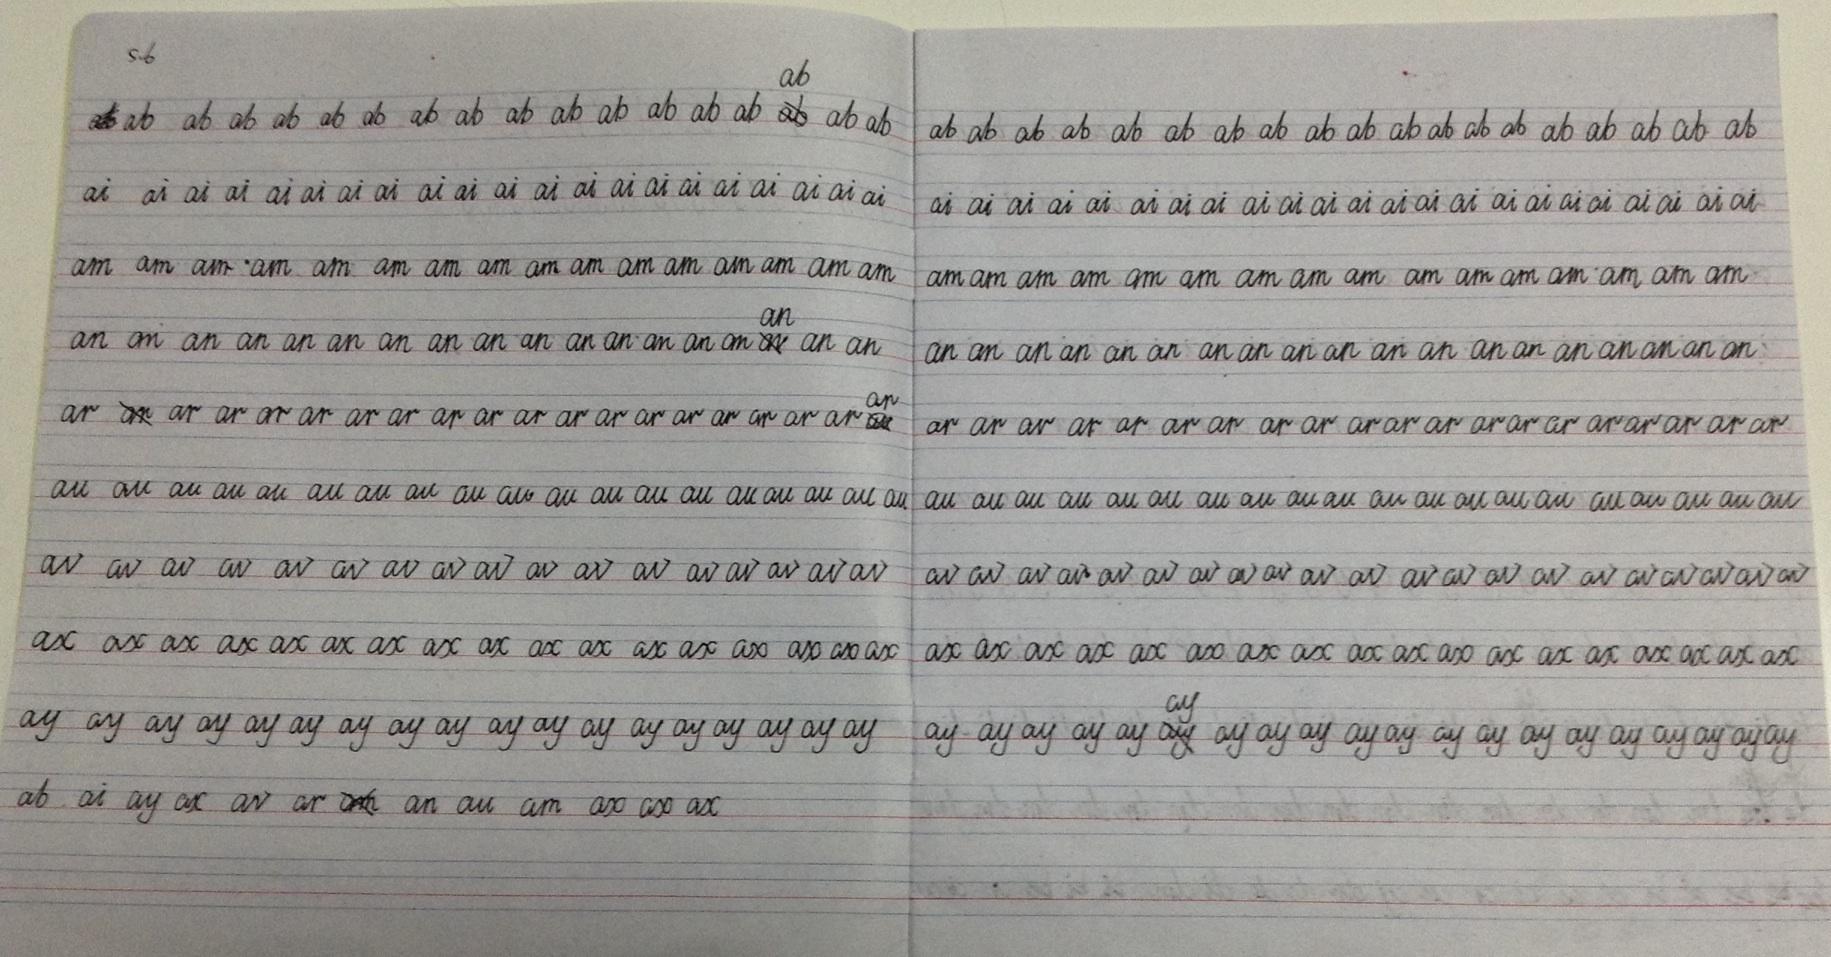 5-6
ab
ab ab ab ab ab ab ab ab ab ab ab ab ab ab ab ab
ai ai ai ai ai ai ai ai ai ai ai ai ai ai ai ai ai ai ai ai ai
am am am am am am am am am am am am am am am am
an
an an an an an an an an an an an an an an an an an
ar
ar ar ar ar ar ar ar ar ar ar ar ar ar ar ar ar ar ar
au au au au au au au au au au au au au au au au au au au
av av av av av av av av av av av av av av av av av
ax ax ax ax ax ax ax ax ax ax ax ax ax ax ax ax ax
ay ay ay ay ay ay ay ay ay ay ay ay ay ay ay ay ay ay
ab ai ay ax av ar an au am ax ax ax
ab ab ab ab ab ab ab ab ab ab ab ab ab ab ab ab ab ab ab
ai ai ai ai ai ai ai ai ai ai ai ai ai ai ai ai ai ai ai ai ai ai ai
am am am am am am am am am am am am am am am am
an an an an an an an an an an an an an an an an an an an
ar ar ar ar ar ar ar ar ar ar ar ar ar ar ar ar ar ar ar ar
au au au au au au au au au au au au au au au au au au au au
av av av av av av av av av av av av av av av av av av av av av
ax ax ax ax ax ax ax ax ax ax ax ax ax ax ax ax ax ax
ay
ay ay ay ay ay ay ay ay ay ay ay ay ay ay ay ay ay ay ay